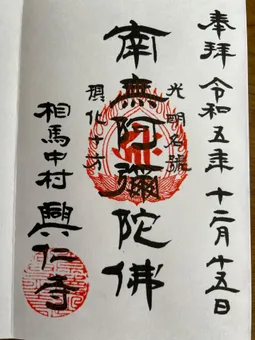 奉拝 令和五年 十二月 十五日
光明名號
南無阿彌陀佛
摂化十方
相馬中村 興仁寺